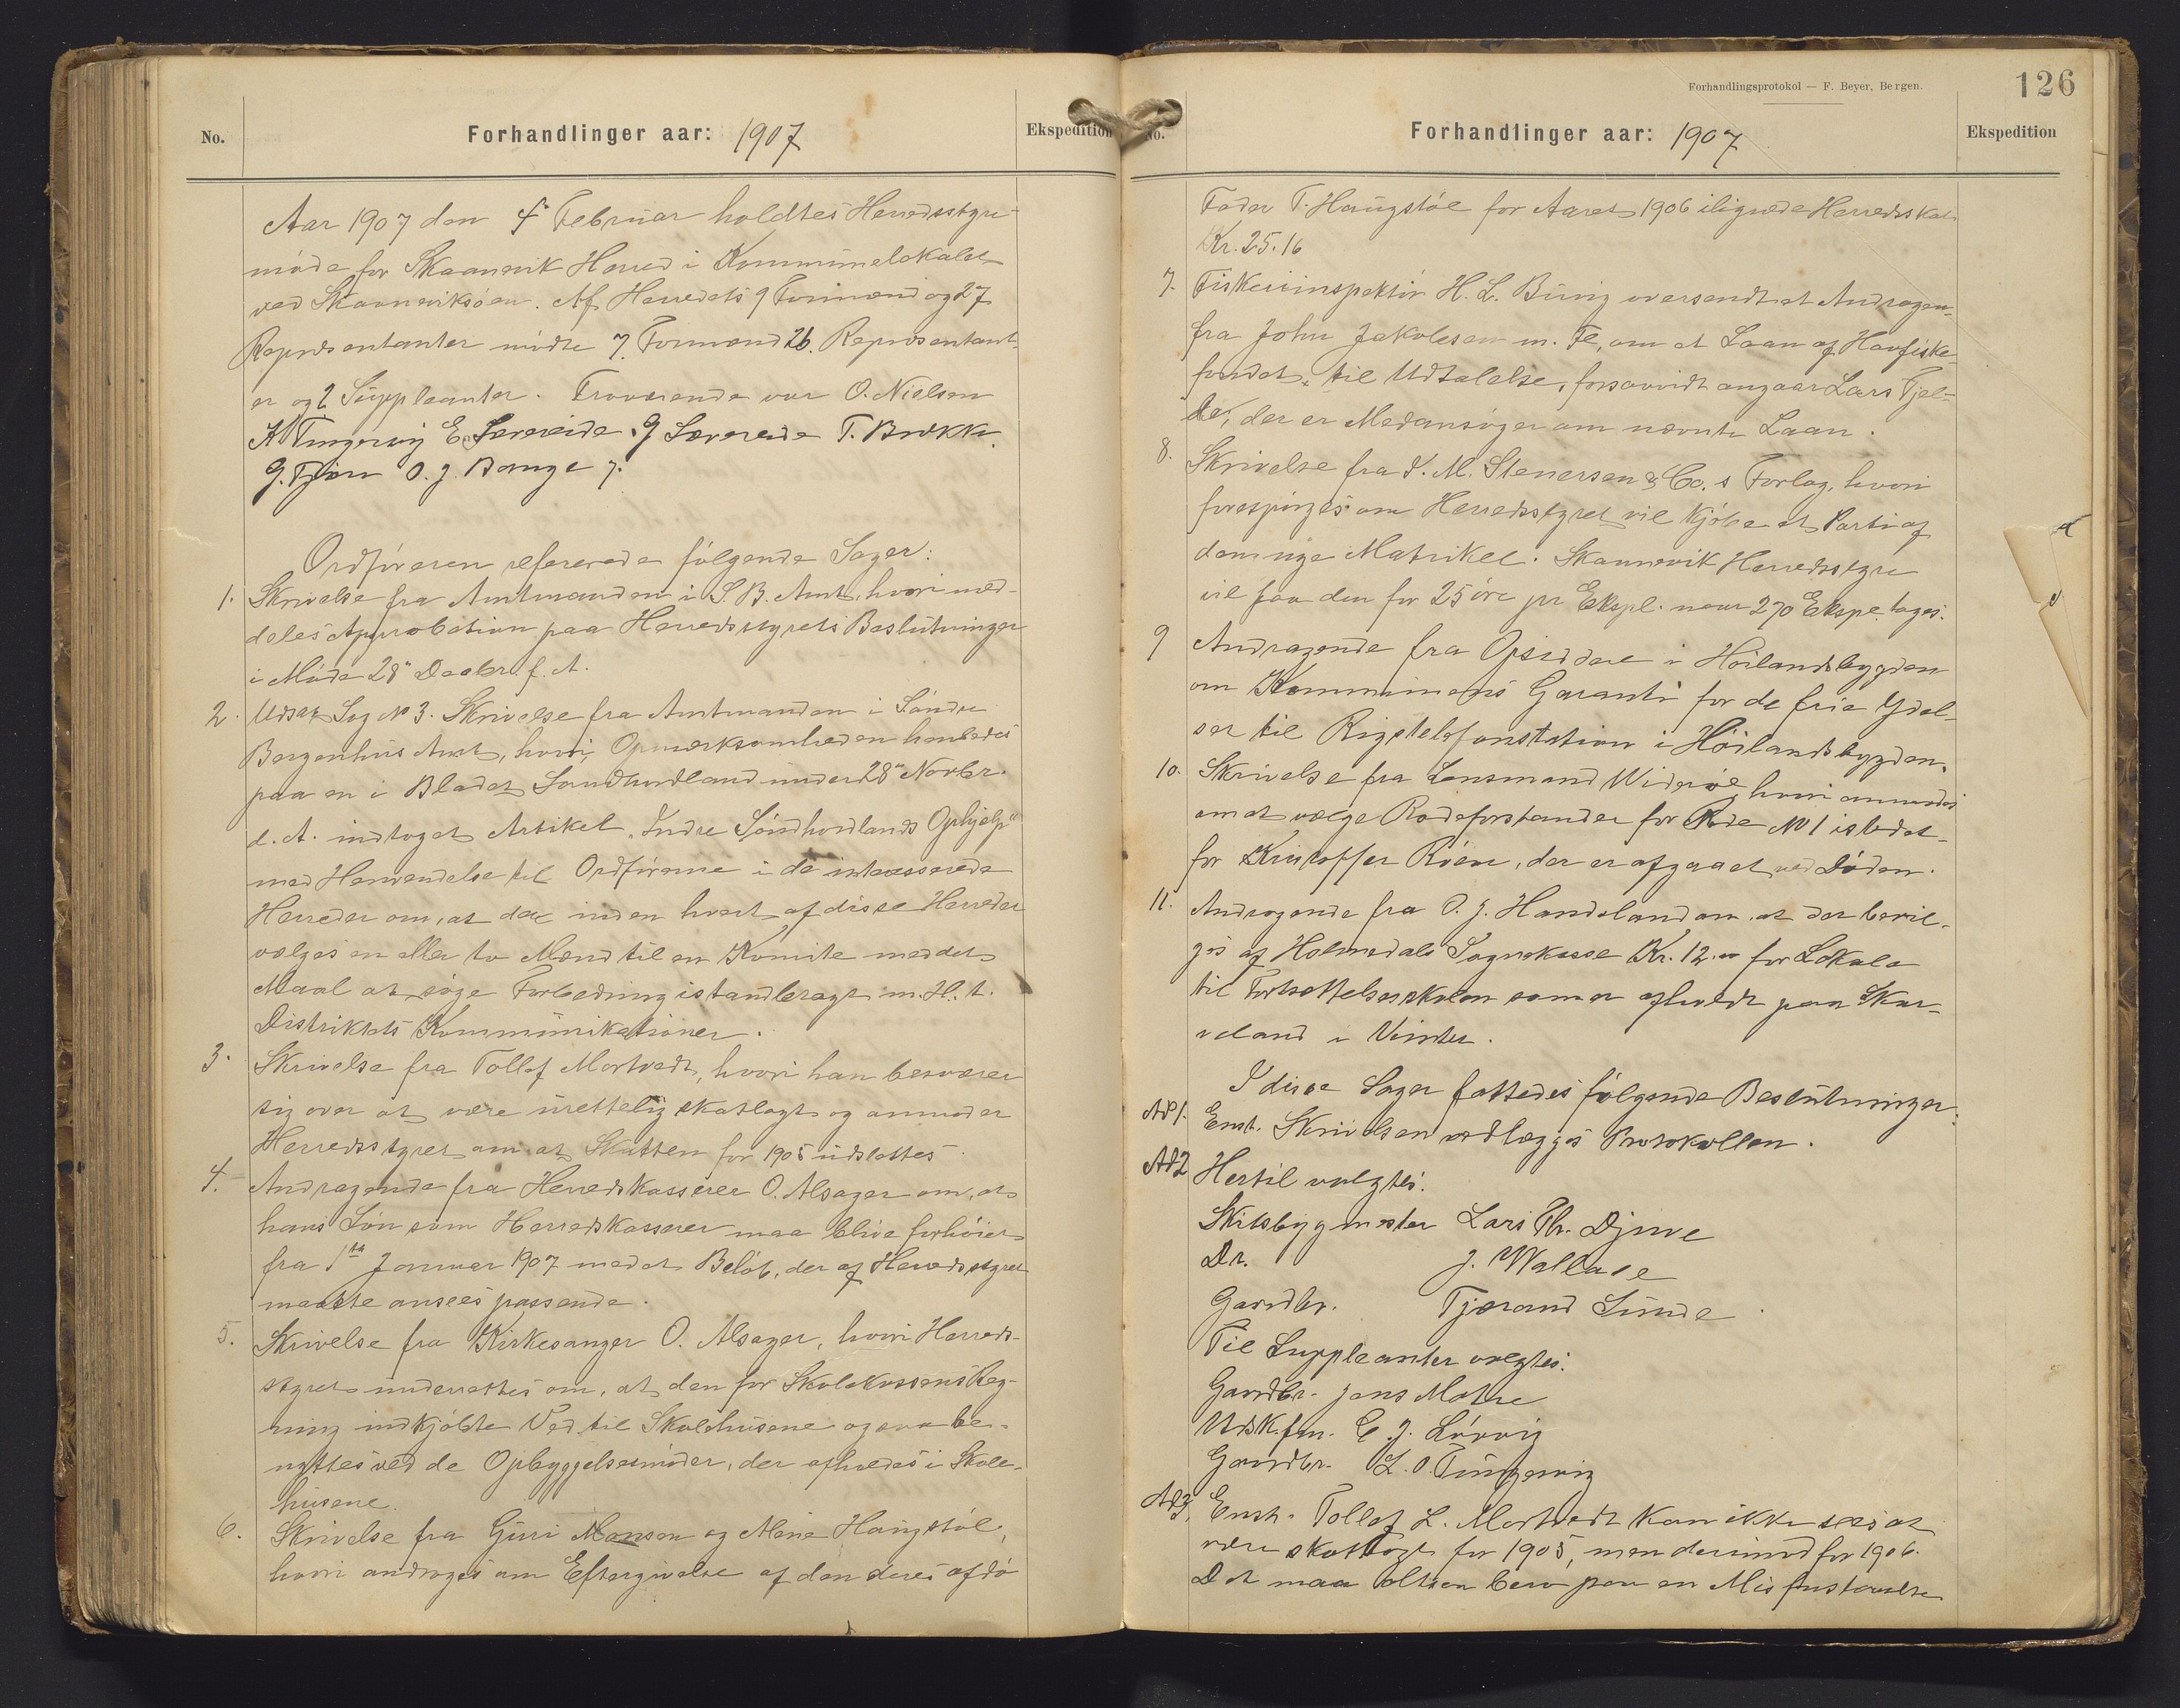 No.
Forhandlinger aar: 1907
Ekspedition
Aar 1907 den 4de Februar holdtes Herredsstyre-
møde for Skaanevik Herred i Kommunelokalet
ved Skaaneviksøen. Af Herredets 9 Formænd og 27
Repræsentanter mødte 7. Formænd 26. Repræsentant-
er og 2 Suppleanter. Fraværende var O. Nielsen
K Tungesvig E. Sævereide. G Sævereide T. Brekke.
G. Fjon O. J. Bange 7.
Ordføreren refererede følgende Sager:
1. Skrivelse fra Amtmanden i S. B. Amt, hvori med-
deles Approbation paa Herredsstyrets Beslutninger
i Møde 28de Decbr. f. A.
2. Udsat Sag No 3. Skrivelse fra Amtmanden i Søndre
Bergenhus Amt, hvori Opmærksomheden henledes
paa en i Bladet Søndhordland under 28de Novbr.
d. A. indtaget Artikel "Indre Søndhordlands Ophjelp"
med Henvendelse til Ordførerne i de interesserede
Herreder om, at der inden hvert af disse Herreder
vælges en eller to Mænd til en Komite med det
Maal at søge Forbedring istandbragt m. H. t.
Distriktets Kommunikationer.
3. Skrivelse fra Tollef Mortvedt, hvori han besværer
sig over at være urettelig skatlagt og anmoder
Herredsstyret om at Skatten for 1905 udslettes.
4. Andragende fra Herredskasserer O. Alsager om, at
hans Løn som Herredskasserer maa blive forhøiet
fra 1ste Januar 1907 med et Beløb, der af Herredsstyret
maatte ansees passende.
5. Skrivelse fra Kirkesanger O. Alsager, hvori Herreds-
styret underrettes om, at den for Skolekassens Reg-
ning indkjøbte Ved til Skolehusene ogsaa be-
nyttes ved de Opbyggelsesmøder, der afholdes i Skole-
husene.
6. Skrivelse fra Guri Monsen og Marie Haugstøl,
hvori androges om Eftergivelse af den deres afdø
Forhandlingsprotokol — F. Beyer, Bergen.
126
No.
Forhandlinger aar: 1907
Ekspedition
Fader T. Haugstøl for Aaret 1906 ilignede Herredsskat
Kr. 25.16
7. Fiskeriinspektør H. L. Buvig oversendt et Andragen-
fra John Jakobsen m. Fl, om et Laan af Havfiske-
fondet, til Udtalelse, forsaavidt angaar Lars Fjel-
de, der er Medansøger om nævnte Laan.
8. Skrivelse fra J. M. Stenersen & Co.s Forlag, hvori
forespørges om Herredsstyret vil kjøbe et Parti af
den nye Matrikel. Skaanevik Herredsstyre
vil faa den for 25 øre pr Ekspl. naar 270 Ekspl tages.
9 Andragende fra Opsiddere i Høilandsbygden
om Kommunens Garanti for de frie Ydel-
ser til Rigstelefonstation i Høilandsbygden.
10. Skrivelse fra Lensmand Widerøe, hvori anmodes
om at vælge Rodeforstander for Rode No 1 istedet-
for Kristoffer Røen, der er afgaaet ved Døden.
11. Andragende fra O. J. Handeland om at der bevil-
ges af Holmedals Sognekasse Kr. 12.00 for Lokale
til Fortsættelsesskolen som er afholdt paa Skar-
veland i Vinter.
I disse Sager fattedes følgende Beslutninger:
Ad 1. Enst. Skrivelsen vedlægges Protokollen.
Ad 2 Hertil valgtes:
Skibsbygmester Lars Th. Djuve
Dr. J. Wallace
Gaardbr. Tjærand Sunde
Til Suppleanter valgtes:
Gaardbr. Jens Matre
Udsk.fm. E. J. Løvvig
Gaardbr. L. O. Tungesvig
Ad 3. Enst. Tollef L. Mortvedt kan ikke sees at
være skatlagt for 1905, men derimod for 1906.
Det maa altsaa bero paa en Misforstaaelse